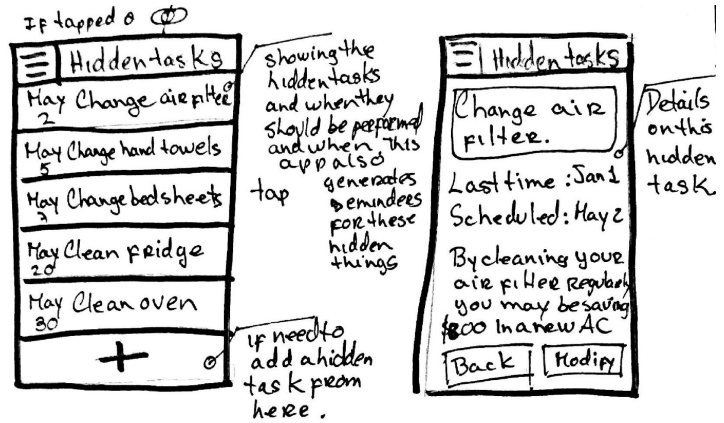 If tapped
Hidden tasks
May 2 Change air filter
May 5 Change hand towels
May Change bedsheets
May 20 Clean Fridge
May 30 Clean oven
+
showing the
hidden tasks
and when they
should be performed
and when This
app also
generates
reminders
for these
hidden
things
tap
if need to
add a hidden
task from
here.
Hidden tasks
Change air
filter.
Last time : Jan 1
Scheduled : May 2
By cleaning your
air filter Regularly
you may be saving
In a new AC
Back
Modify
Details
on this
hidden
task